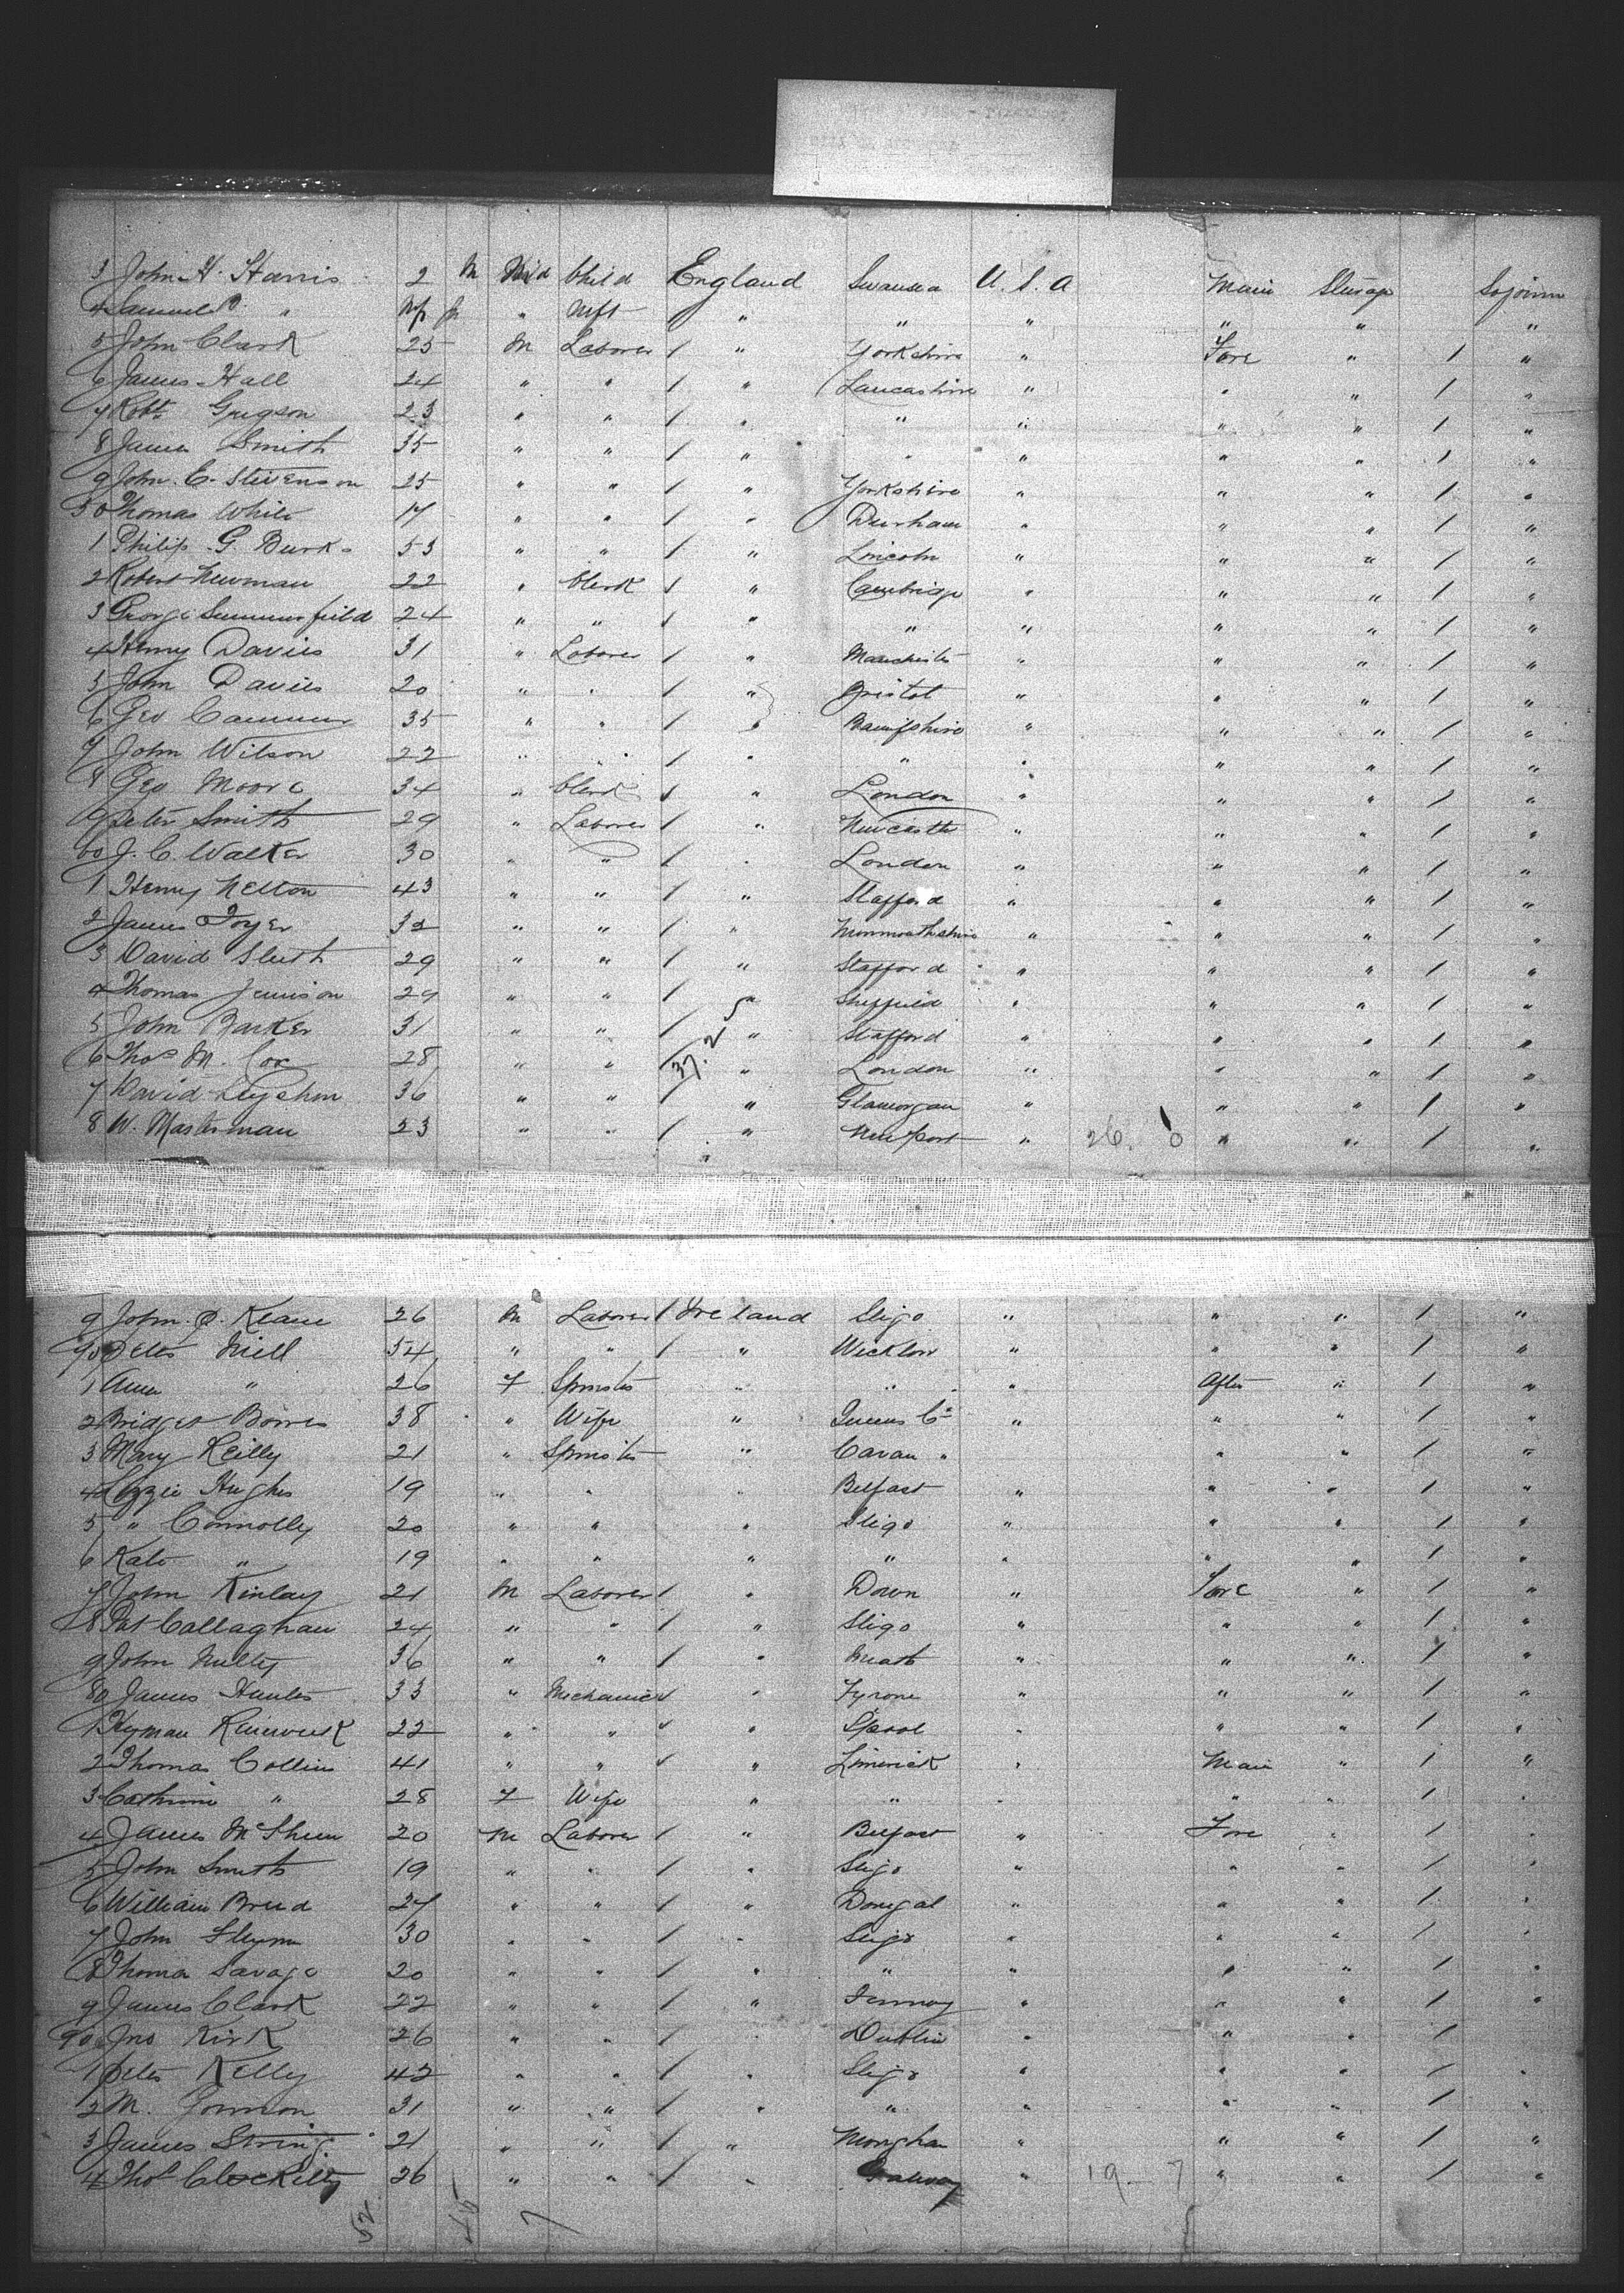 3 John H. Harris 2 M Child England Swansea U.S.A Main Sojourn
4 Samuel " " " " " " " "
5 John Clark 25 M Laborer 1 " Yorkshire " Fore " 1 "
6 James Hall 24 " " 1 " Lancashire " " " 1 "
7 Robt Gregson 23 " " 1 " " " " " 1 "
8 James Smith 35 " " 1 " " " " " 1 "
9 John E. Stevenson 25 " " 1 " Yorkshire " " " 1 "
50 Thomas White 17 " " 1 " Durham " " " 1 "
1 Philip G. Burks 53 " " 1 " Lincoln " " " 1 "
2 Robert Newman 22 " Clerk 1 " Cambridge " " " 1 "
3 George Summersfield 24 " " 1 " " " " " 1 "
4 Henry Davies 31 " Laborer 1 " Manchester " " " 1 "
5 John Davies 20 " " 1 " Bristol " " " 1 "
6 Geo 35 " " 1 " " " " 1 "
7 John Wilson 22 " " 1 " " " " " 1 "
8 Geo Moore 34 " Clerk 1 " London " " " 1 "
9 Peter Smith 29 " Laborer 1 " Newcastle " " " 1 "
60 J. C. Walker 30 " " 1 " London " " " 1 "
1 Henry Nelton 43 " " 1 " Stafford " " " 1 "
2 James 32 " " 1 " Monmouthshire " " " 1 "
3 David Sleeth 29 " " 1 " Stafford " " " 1 "
4 Thomas Jemison 29 " " 1 " Sheffield " " " 1 "
5 John Barker 31 " " 1 " Stafford " " " 1 "
6 Thos M. Cox 28 " " " London " " " 1 "
7 David Leyshon 36 " " 1 " Glamorgan " " " 1 "
8 W. Masterman 23 " " 1 " Newport " 26. 0 " " 1 "
9 John P. Keane 26 M Laborer 1 Ireland Sligo " " " 1 "
70 Peter Neill 54 " " 1 " Wicklow " " " 1 "
1 Ann " 26 F Spinster " " " After " 1 "
2 Bridget Bowes 38 " Wife " Queens Co " " " 1 "
3 Mary Reilly 21 " Spinster " Cavan " " " 1 "
4 Lizzie Hughes 19 " " " Belfast " " " 1 "
5 " Connolly 20 " " " Sligo " " " 1 "
6 Kate " 19 " " " " " " " 1 "
7 John Kinlay 21 M Laborer 1 " Down " Fore " 1 "
8 Pat Callaghan 24 " " 1 " Sligo " " " 1 "
9 John Nulty 36 " " 1 " Meath " " " 1 "
80 James Hunter 33 " Mechanic 1 " Tyrone " " " 1 "
1 Hyman 22 " " 1 " " " " 1 "
2 Thomas Collins 41 " " 1 " Limerick " Main " 1 "
3 Catherine " 28 F Wife " " " " " 1 "
4 James 20 M Laborer 1 " Belfast " Fore " 1 "
5 John Smith 19 " " 1 " Sligo " " " 1 "
6 William 27 " " 1 " Donegal " " " 1 "
7 John Flynn 30 " " 1 " Sligo " " " 1 "
8 Thomas Savage 20 " " 1 " " " " " 1 "
9 James Clark 22 " " 1 " Fermoy " " " 1 "
90 Jno Kirk 26 " " 1 " Dublin " " " 1
1 Peter Kelly 42 " " 1 " Sligo " " " 1 "
2 M. 31 " " 1 " " " " " 1 "
3 James String 21 " " 1 " Monghan " " " 1 "
4 Thos 26 " " 1 " Galway " 19 - 7 " " 1 "
52 45 7